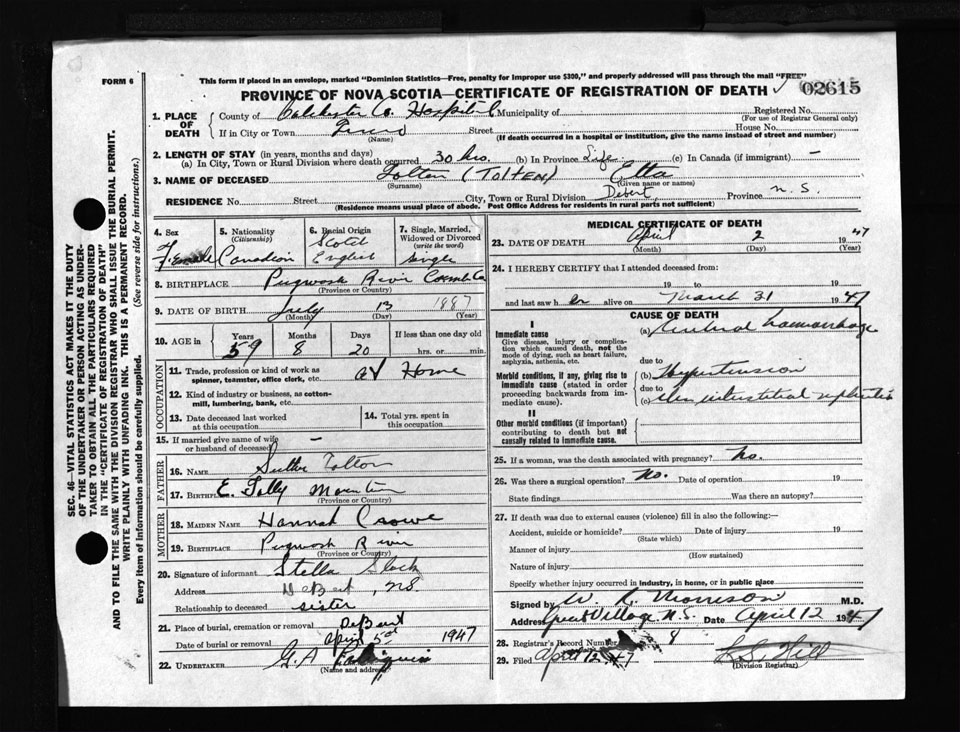 FORM 6
This form if placed in an envelope, marked "Dominion Statistics—Free, penalty for improper use $300," and properly addressed will pass through the mail "FREE"
PROVINCE OF NOVA SCOTIA—CERTIFICATE OF REGISTRATION OF DEATH
02615
SEC. 46—VITAL STATISTICS ACT MAKES IT THE DUTY
OF THE UNDERTAKER OR PERSON ACTING AS UNDER-
TAKER TO OBTAIN ALL THE PARTICULARS REQUIRED
IN THE "CERTIFICATE OF REGISTRATION OF DEATH"
AND TO FILE THE SAME WITH THE DIVISION REGISTRAR WHO SHALL ISSUE THE BURIAL PERMIT.
WRITE PLAINLY WITH UNFADING INK. THIS IS A PERMANENT RECORD.
Every item of information should be carefully supplied. (See reverse side for instructions.)
1. PLACE OF DEATH
County of Colchester Co. Hospital Municipality of Registered No.
(For use of Registrar General only)
If in City or Town Truro Street House No.
(Name) (If death occurred in a hospital or institution, give the name instead of street and number)
2. LENGTH OF STAY (in years, months and days)
(a) In City, Town or Rural Division where death occurred 30 hrs. (b) In Province Life (c) In Canada (if immigrant) —
3. NAME OF DECEASED Tolten (TOLTEN) Etta
(Surname) (Given name or names)
RESIDENCE No. Street City, Town or Rural Division Debert Province N.S.
(Residence means usual place of abode. Post Office Address for residents in rural parts not sufficient)
4. Sex Female
5. Nationality (Citizenship) Canadian
6. Racial Origin Scotch English
7. Single, Married, Widowed or Divorced (write the word) Single
8. BIRTHPLACE Pugwash River Cumb Co
(Province or Country)
9. DATE OF BIRTH July 13 1887
(Month) (Day) (Year)
10. AGE in Years 59 Months 8 Days 20 If less than one day old hrs. or min.
OCCUPATION
11. Trade, profession or kind of work as spinner, teamster, office clerk, etc. at Home
12. Kind of industry or business, as cotton-mill, lumbering, bank, etc.
13. Date deceased last worked at this occupation
14. Total yrs. spent in this occupation
15. If married give name of wife or husband of deceased —
FATHER
16. NAME Tolton
17. BIRTHPL E. Folly Mountain
(Province or Country)
MOTHER
18. MAIDEN NAME Hannah Crowe
19. BIRTHPLACE Pugwash River
(Province or Country)
20. Signature of informant Stella
Address Debert, NS
Relationship to deceased sister
21. Place of burial, cremation or removal Debert
Date of burial or removal April 5 1947
22. UNDERTAKER G.A
(Name and address)
MEDICAL CERTIFICATE OF DEATH
23. DATE OF DEATH April 2 1947
(Month) (Day) (Year)
24. I HEREBY CERTIFY that I attended deceased from:
19 to 19
and last saw h er alive on March 31 1947
CAUSE OF DEATH
I
Immediate cause
Give disease, injury or complication which caused death, not the mode of dying, such as heart failure, asphyxia, asthenia, etc.
(a) Cerebral haemorrhage
due to
Morbid conditions, if any, giving rise to immediate cause (stated in order proceeding backwards from immediate cause).
(b) Hypertension
due to
(c) interstitial nephritis
II
Other morbid conditions (if important) contributing to death but not causally related to immediate cause.
25. If a woman, was the death associated with pregnancy? No.
26. Was there a surgical operation? No. Date of operation 19
State findings Was there an autopsy?
27. If death was due to external causes (violence) fill in also the following:—
Accident, suicide or homicide? Date of injury 19
(State which)
Manner of injury
(How sustained)
Nature of injury
Specify whether injury occurred in industry, in home, or in public place
Signed by W. R. Morrison M.D.
Address Great Village N.S. Date April 12 1947
28. Registrar's Record Number 8
29. Filed April 12 47
(Division Registrar)